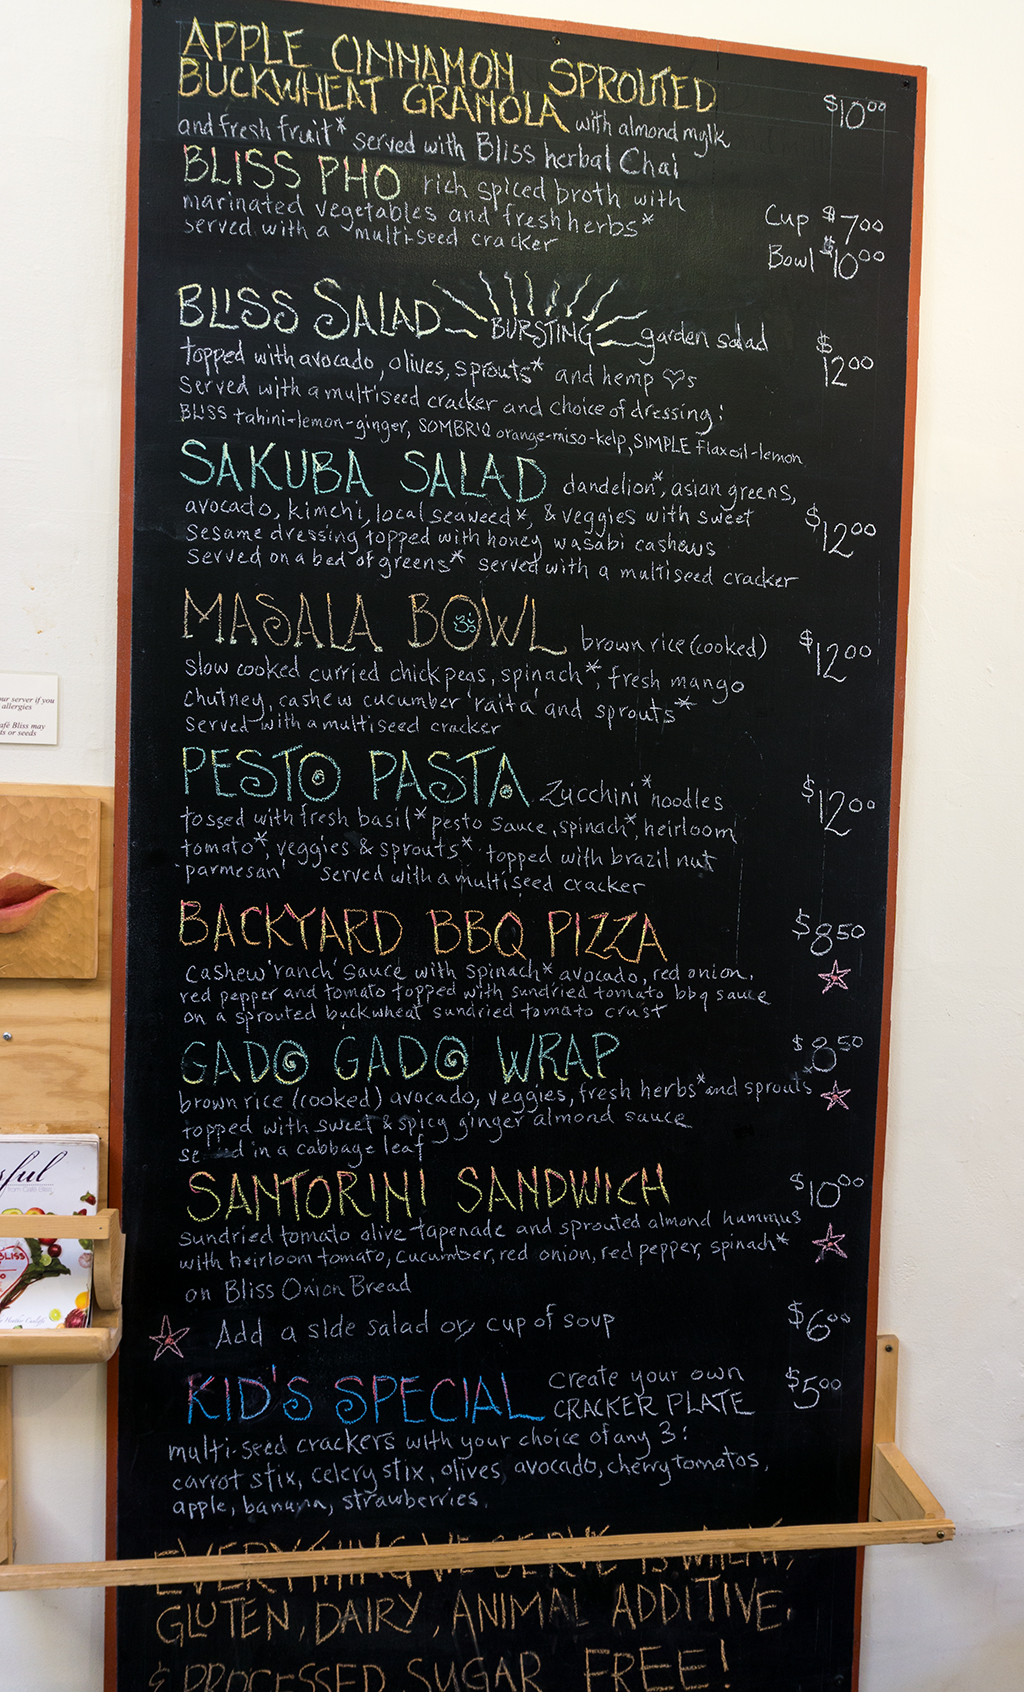 APPLE CINNAMON SPROUTED
BUCKWHEAT GRANOLA with almond mylk $10.00
and fresh fruit* served with Bliss herbal Chai
BLISS PHO rich spiced broth with
marinated vegetables and fresh herbs* Cup $7.00
served with a multi-seed cracker Bowl $10.00
BLISS SALAD BURSTING garden salad $12.00
topped with avocado, olives, sprouts* and hemp ♡s
served with a multiseed cracker and choice of dressing:
BLISS tahini-lemon-ginger, SOMBRIO orange-miso-kelp, SIMPLE flaxoil-lemon
SAKURA SALAD dandelion*, asian greens,
avocado, kimchi, local seaweed*, & veggies with sweet $12.00
sesame dressing topped with honey wasabi cashews
served on a bed of greens* served with a multiseed cracker
MASALA BOWL ॐ brown rice (cooked) $12.00
slow cooked curried chick peas, spinach*, fresh mango
chutney, cashew cucumber 'raita' and sprouts*
served with a multiseed cracker
PESTO PASTA zucchini* noodles $12.00
tossed with fresh basil* pesto sauce, spinach*, heirloom
tomato*, veggies & sprouts* topped with brazil nut
'parmesan' served with a multiseed cracker
BACKYARD BBQ PIZZA $8.50
cashew 'ranch' sauce with spinach* avocado, red onion,
red pepper and tomato topped with sundried tomato bbq sauce
on a sprouted buckwheat sundried tomato crust
GADO GADO WRAP $8.50
brown rice (cooked) avocado, veggies, fresh herbs* and sprouts*
topped with sweet & spicy ginger almond sauce
in a cabbage leaf
SANTORINI SANDWICH $10.00
sundried tomato olive tapenade and sprouted almond hummus
with heirloom tomato, cucumber, red onion, red pepper, spinach*
on Bliss Onion Bread
Add a side salad or cup of soup $6.00
KID'S SPECIAL create your own $5.00
CRACKER PLATE
multi-seed crackers with your choice of any 3:
carrot stix, celery stix, olives, avocado, cherry tomatos,
apple, banana, strawberries.
EVERYTHING WE SERVE IS WHEAT,
GLUTEN, DAIRY, ANIMAL ADDITIVE,
& PROCESSED SUGAR FREE!
ur server if you
allergies
afé Bliss may
ts or seeds
sful
BLISS